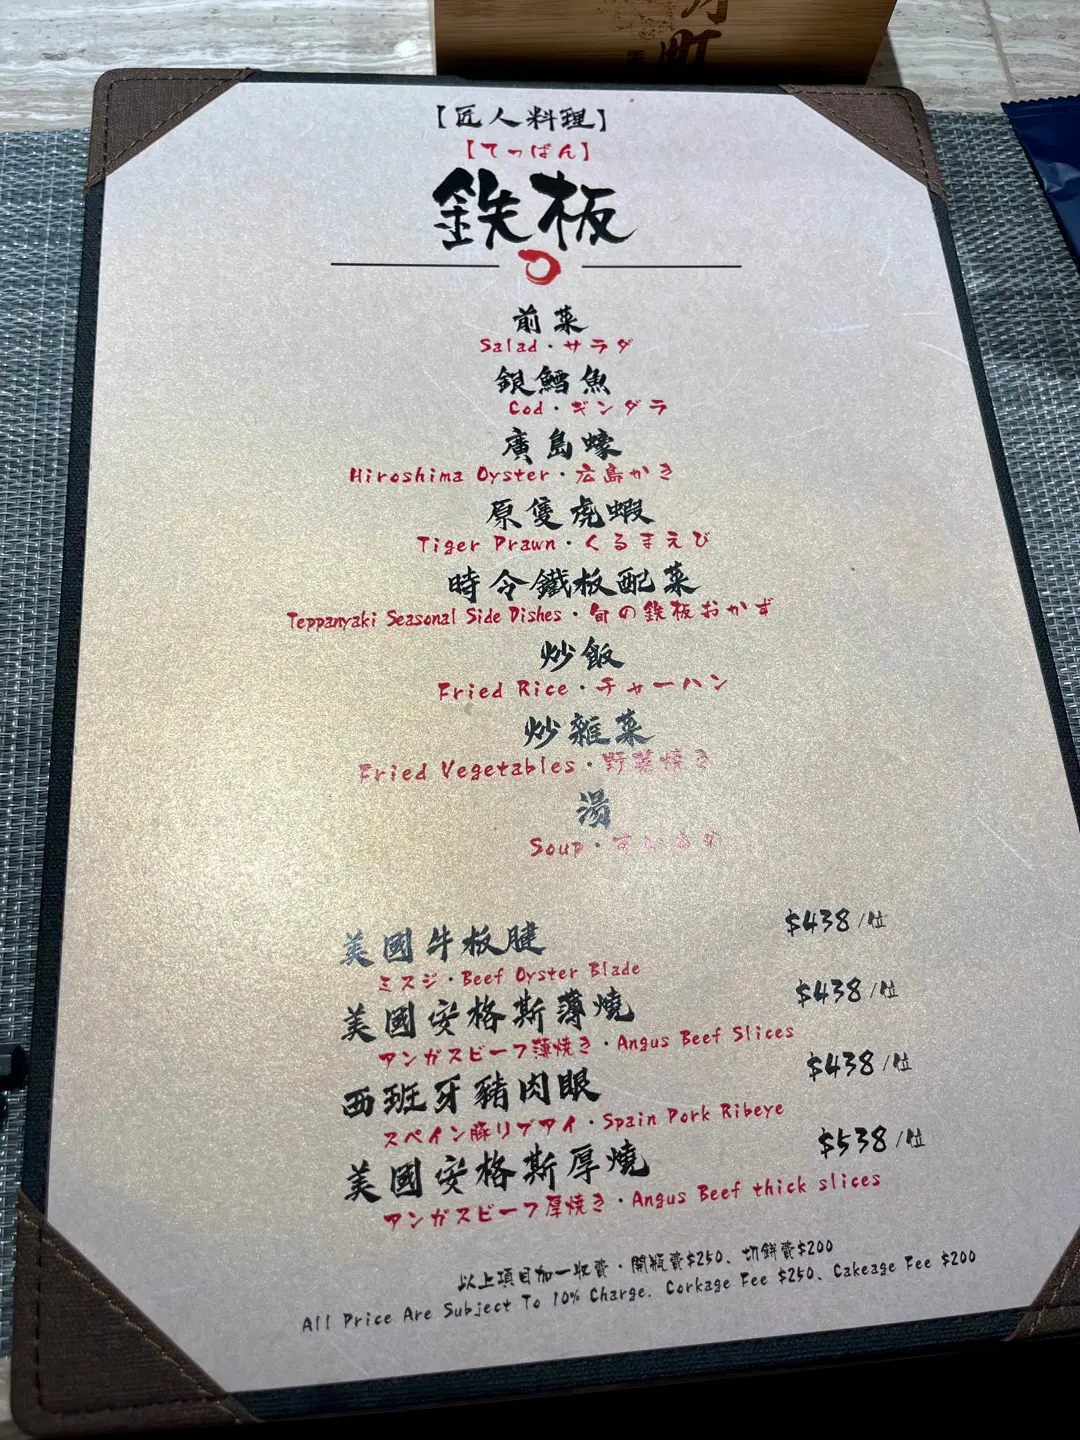 町
【匠人料理】
【てっぱん】
鉄板
前菜
Salad・サラダ
銀鱈魚
Cod・ギンダラ
廣島蠔
Hiroshima Oyster・広島かき
原隻虎蝦
Tiger Prawn・くるまえび
時令鐵板配菜
Teppanyaki Seasonal Side Dishes・旬の鉄板おかず
炒飯
Fried Rice・チャーハン
炒雜菜
Fried Vegetables・野菜焼き
湯
Soup・
美國牛板腱 $438/位
ミスジ・Beef Oyster Blade
美國安格斯薄燒 $438/位
アンガスビーフ薄焼き・Angus Beef Slices
西班牙豬肉眼 $438/位
スペイン豚リブアイ・Spain Pork Ribeye
美國安格斯厚燒 $538/位
アンガスビーフ厚焼き・Angus Beef thick slices
以上項目加一收費・開瓶費$250、切餅費$200
All Price Are Subject To 10% Charge. Corkage Fee $250、Cakeage Fee $200